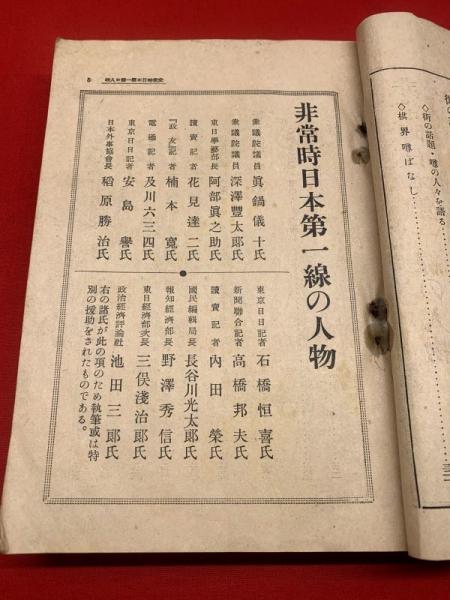 街の話題・噂の人々を語る
◇棋界噂ばなし
非常時日本第一線の人物
衆議院議員 眞鍋儀十氏
衆議院議員 深澤豐太郎氏
東日學藝部長 阿部眞之助氏
讀賣記者 花見達二氏
『政友』記者 楠本寛氏
電通記者 及川六三四氏
東京日日記者 安島譽氏
日本外事協會長 稻原勝治氏
東京日日記者 石橋恒喜氏
新聞聯合記者 高橋邦夫氏
讀賣記者 內田榮氏
國民編輯局長 長谷川光太郎氏
報知經濟部長 野澤秀信氏
東日經濟部次長 三俣淺治郎氏
政治經濟評論社 池田三郎氏
右の諸氏が此の項のため執筆或は特
別の援助をされたものである。